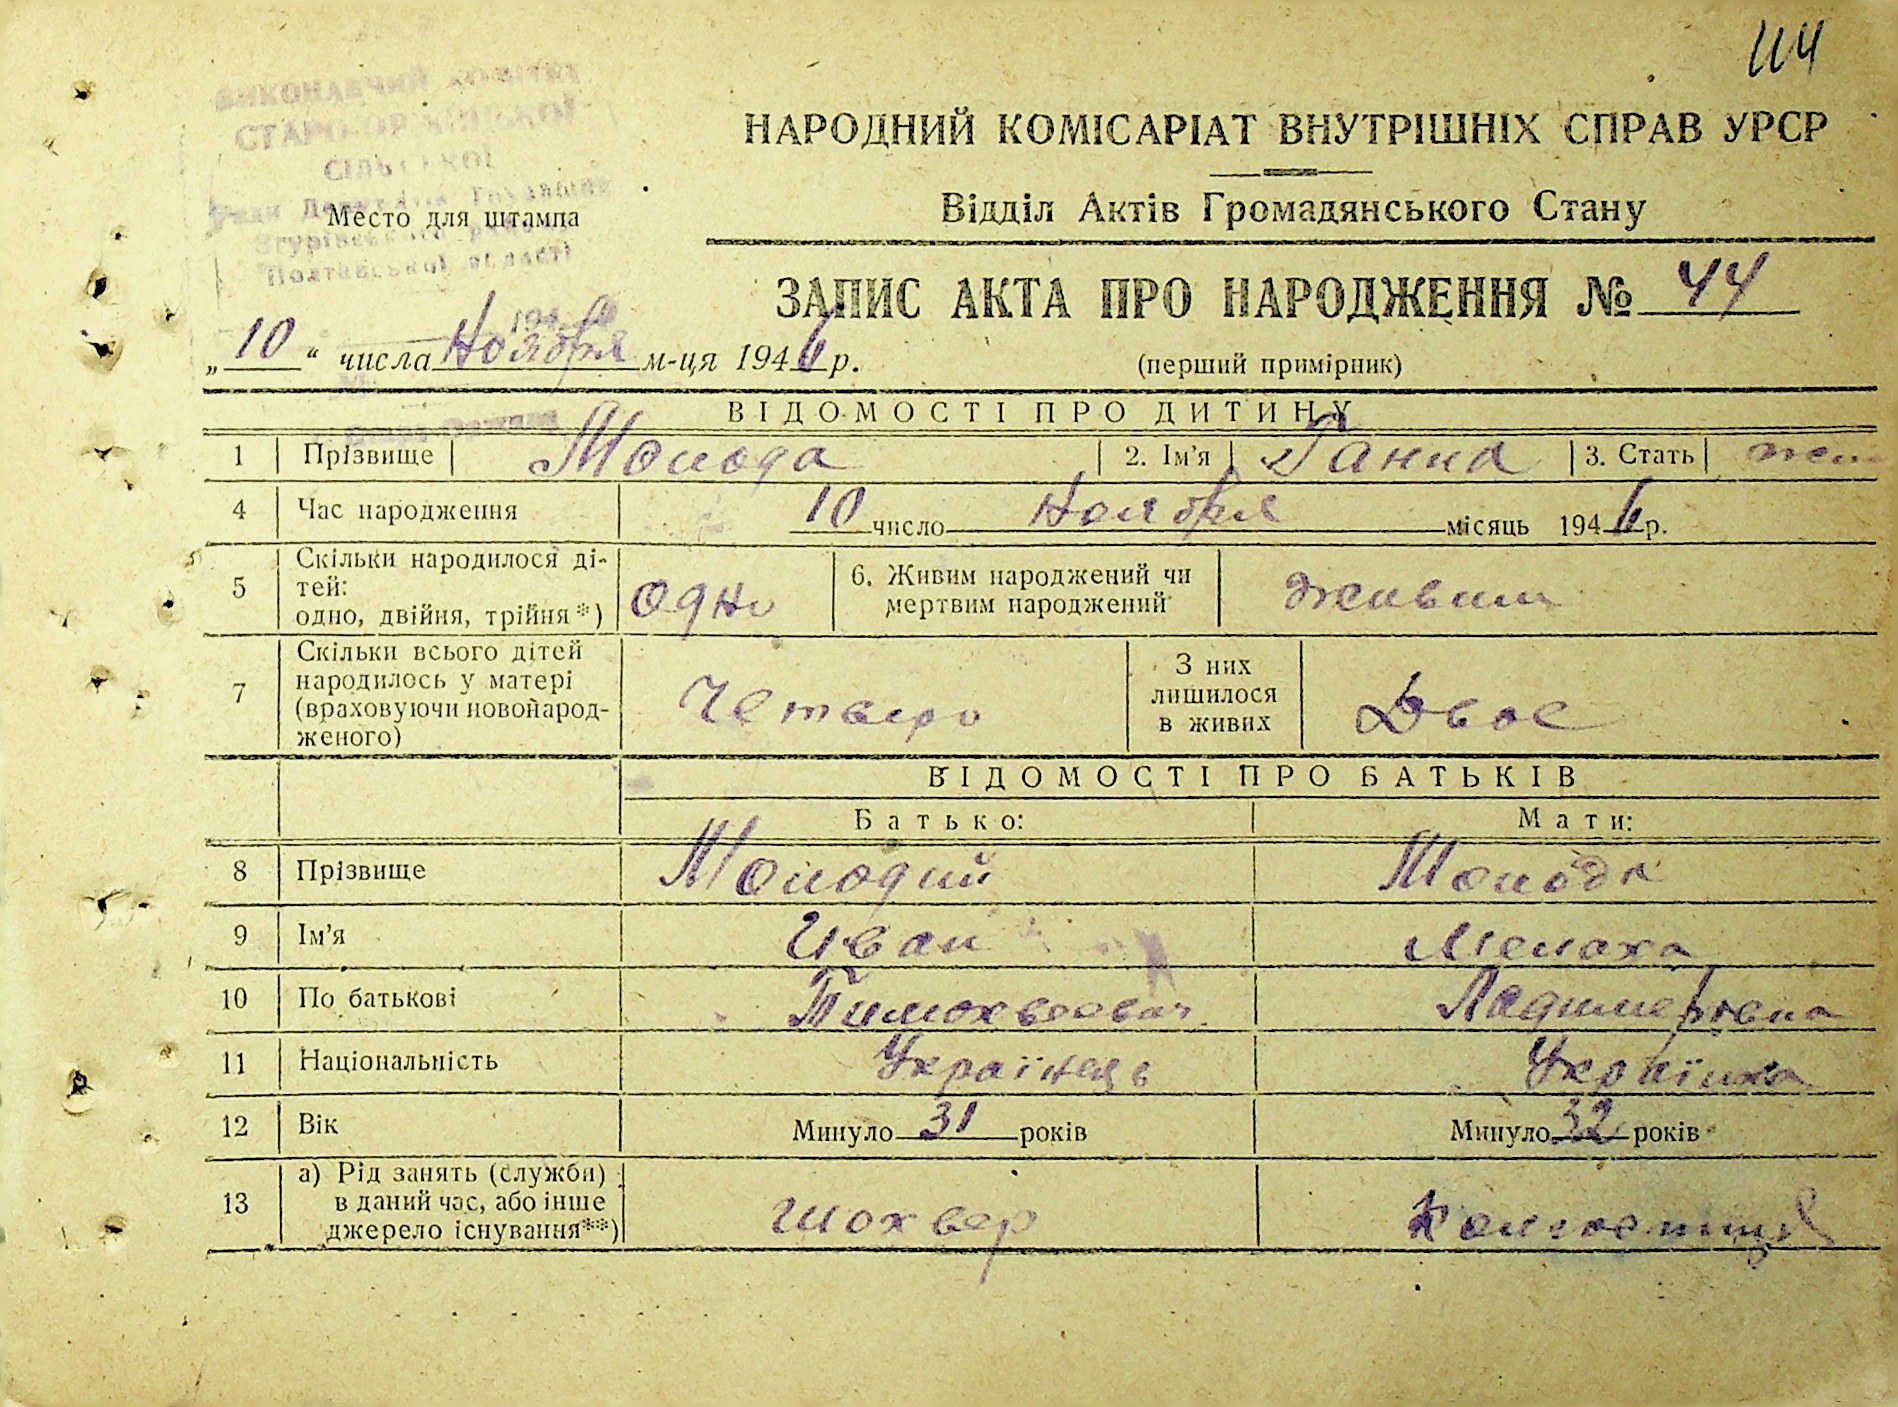 114
ВИКОНАВЧИЙ КОМІТЕТ
СІЛЬСЬКОЇ
Ради Депутатів Трудящих
Згурівського району
Полтавської області
Место для штампа
НАРОДНИЙ КОМІСАРІАТ ВНУТРІШНІХ СПРАВ УРСР
Відділ Актів Громадянського Стану
ЗАПИС АКТА ПРО НАРОДЖЕННЯ № 44
„10“ числа Ноября м-ця 1946 р.
(перший примірник)
ВІДОМОСТІ ПРО ДИТИНУ
1 Прізвище Молода 2. Ім'я Ганна 3. Стать жен
4 Час народження 10 число Ноября місяць 1946 р.
5 Скільки народилося ді-
тей:
одно, двійня, трійня*) одно
6. Живим народжений чи
мертвим народжений живим
7 Скільки всього дітей
народилось у матері
(враховуючи новонарод-
женого) Четверо
З них
лишилося
в живих Двоє
ВІДОМОСТІ ПРО БАТЬКІВ
Батько: Мати:
8 Прізвище Молодий Молода
9 Ім'я Иван Мелаха
10 По батькові Тимохвеевич
11 Національність Українець Українка
12 Вік Минуло 31 років Минуло 32 років
13 а) Рід занять (служби)
в даний час, або інше
джерело існування**) Шохвер Колгоспниця